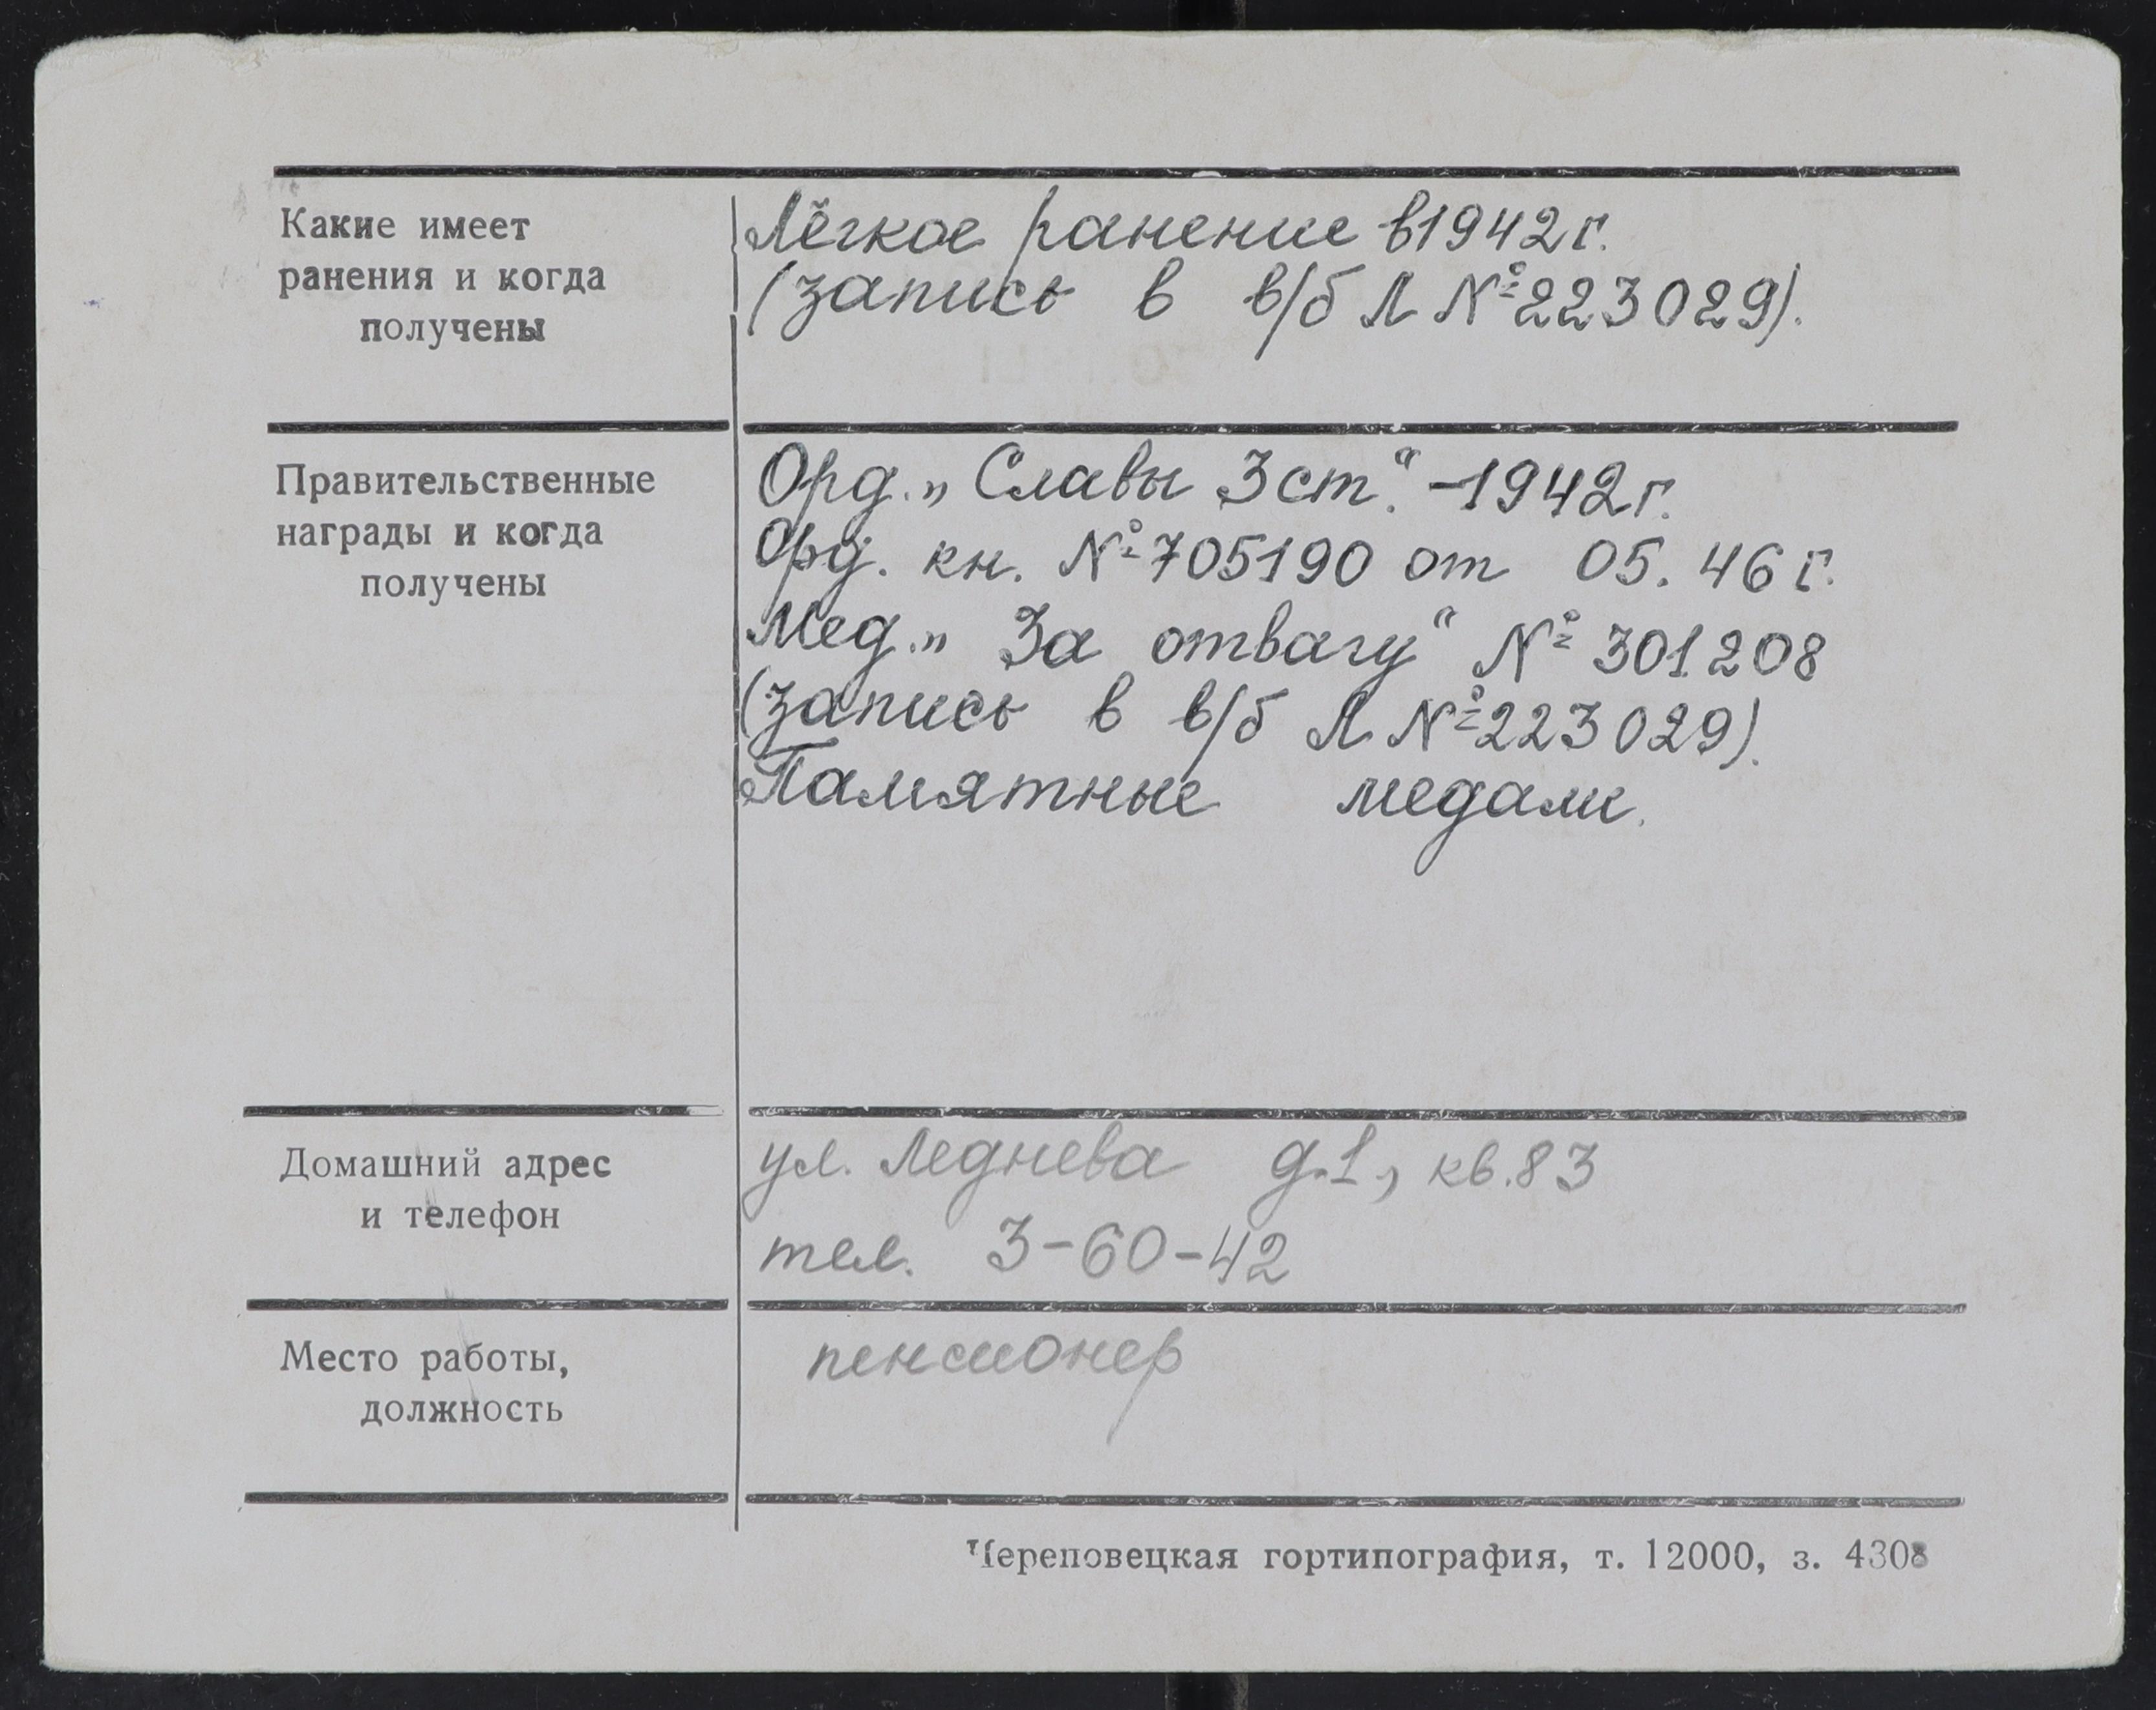 Какие имеет
ранения и когда
получены
Лёгкое ранение в 1942 г.
(запись в в/б Л №223029).
Правительственные
награды и когда
получены
Орд. „Славы 3 ст." - 1942 г.
Орд. кн. №705190 от 05. 46 г.
Мед. „За отвагу" № 301208
(запись в в/б Л №223029).
Памятные медали.
Домашний адрес
и телефон
ул. Леднева д.1, кв. 83
тел. 3-60-42
Место работы,
должность
пенсионер
Череповецкая гортипография, т. 12000, з. 4308